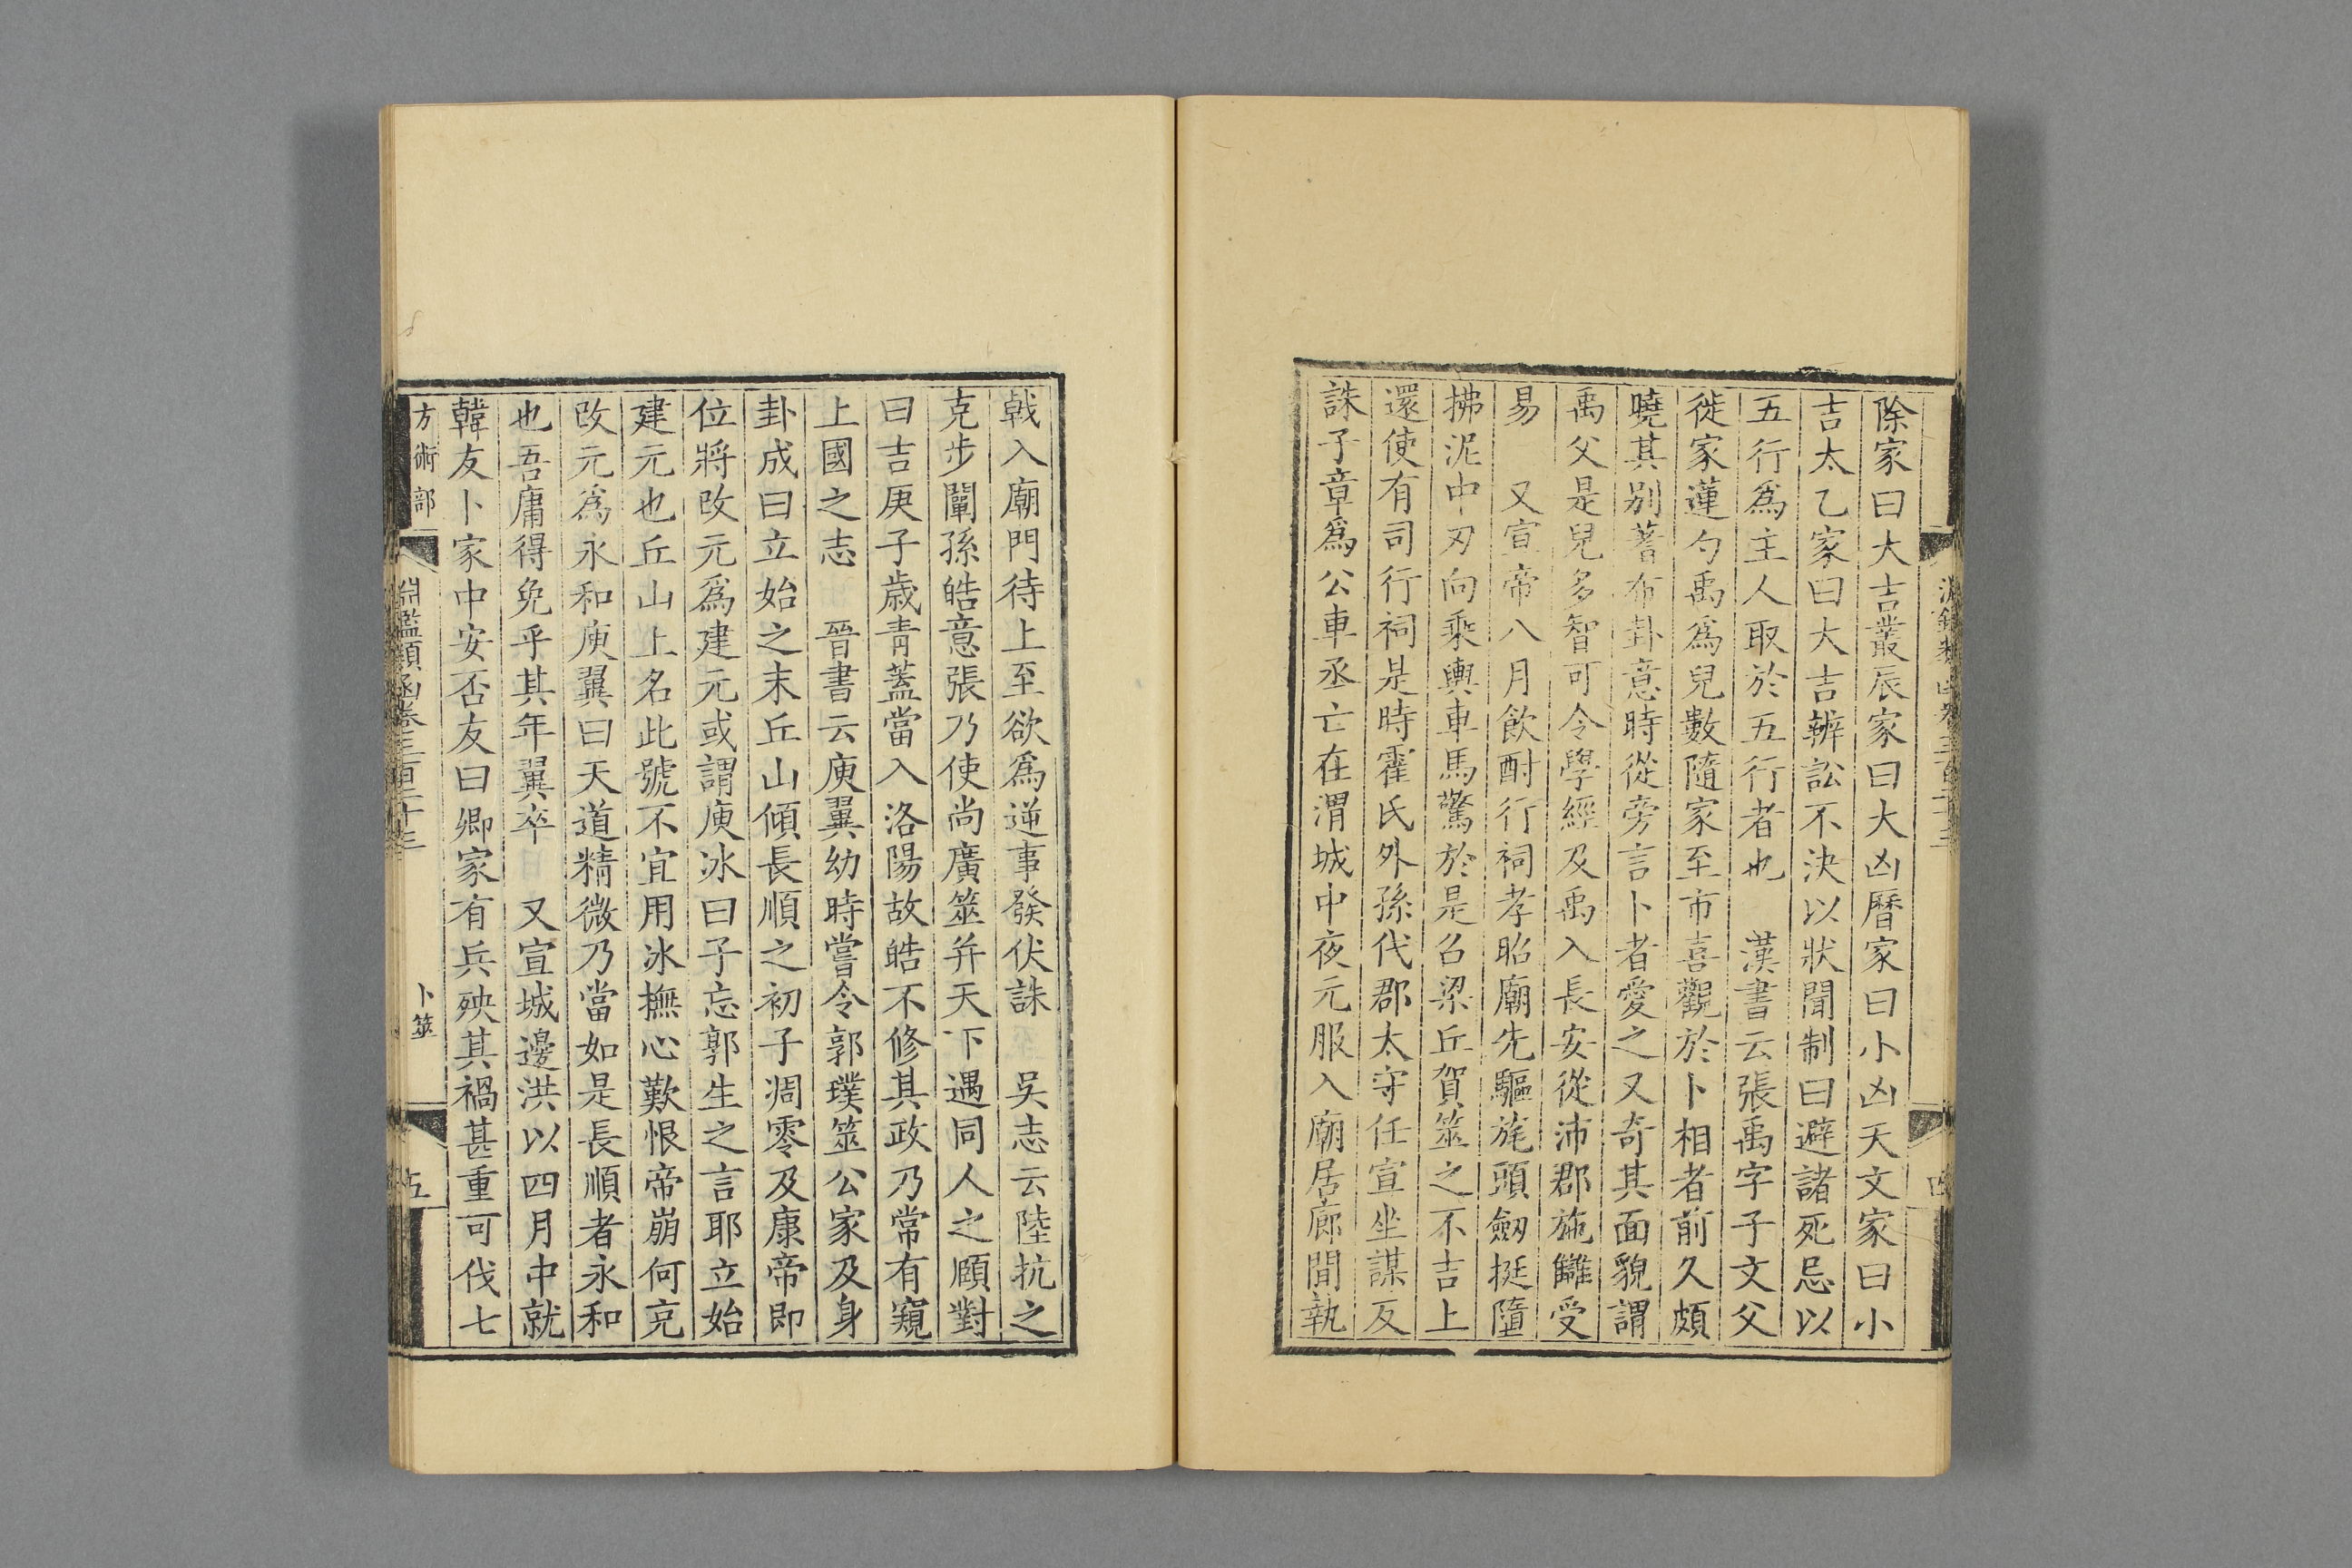 除家曰大吉叢辰家曰大凶曆家曰小凶天文家曰小
吉太乙家曰大吉辨訟不決以狀聞制曰避諸死忌以
五行爲主人取於五行者也　漢書云張禹字子文父
徙家蓮勺禹爲兒數隨家至市喜觀於卜相者前久頗
曉其别蓍布卦意時從旁言卜者愛之又奇其面貌謂
禹父是兒多智可令學經及禹入長安從沛郡施讎受
易　又宣帝八月飲酎行祠孝昭廟先驅旄頭劒挺墮
拂泥中刃向乘輿車馬驚於是召梁丘賀筮之不吉上
還使有司行祠是時霍氏外孫代郡太守任宣坐謀反
誅子章爲公車丞亡在渭城中夜元服入廟居廊間執
戟入廟門待上至欲爲逆事發伏誅　吳志云陸抗之
克步闡孫皓意張乃使尚廣筮并天下遇同人之頤對
曰吉庚子歲青蓋當入洛陽故皓不修其政乃常有窺
上國之志　晉書云庾翼幼時嘗令郭璞筮公家及身
卦成曰立始之末丘山傾長順之初子凋零及康帝即
位將改元爲建元或謂庾冰曰子忘郭生之言耶立始
建元也丘山上名此號不宜用冰撫心歎恨帝崩何充
改元爲永和庾翼曰天道精微乃當如是長順者永和
也吾庸得免乎其年翼卒　又宣城邊洪以四月中就
韓友卜家中安否友曰卿家有兵殃其禍甚重可伐七
方術部　淵鑑類函卷三百二十三　卜筮　五